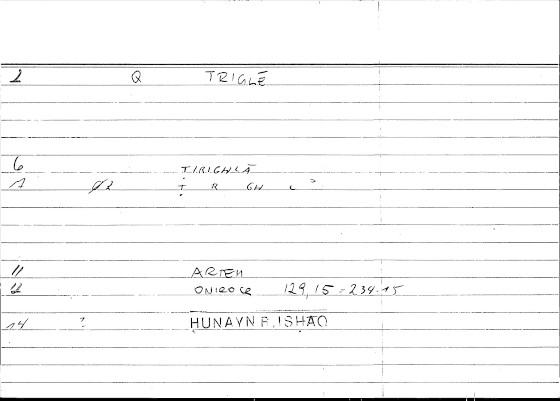 2 Q TRIGLĒ
6 ṬIRIGHLĀ
1 Ø2 Ṭ R GH L ᵓ
11 ARTEM
12 ONIROCR 129,15 = 234.15
14 ? ḤUNAYN B. ISḤAQ